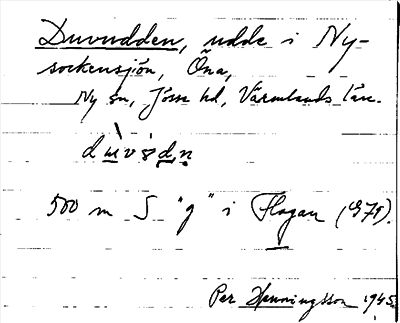 Duvudden, udde i Ny-
sockensjön, Öna,
Ny sn, Jösse hd, Värmlands län.
dùvɵdn
500 m S "g" i Flogan (979).
Per Henningsson 1945.